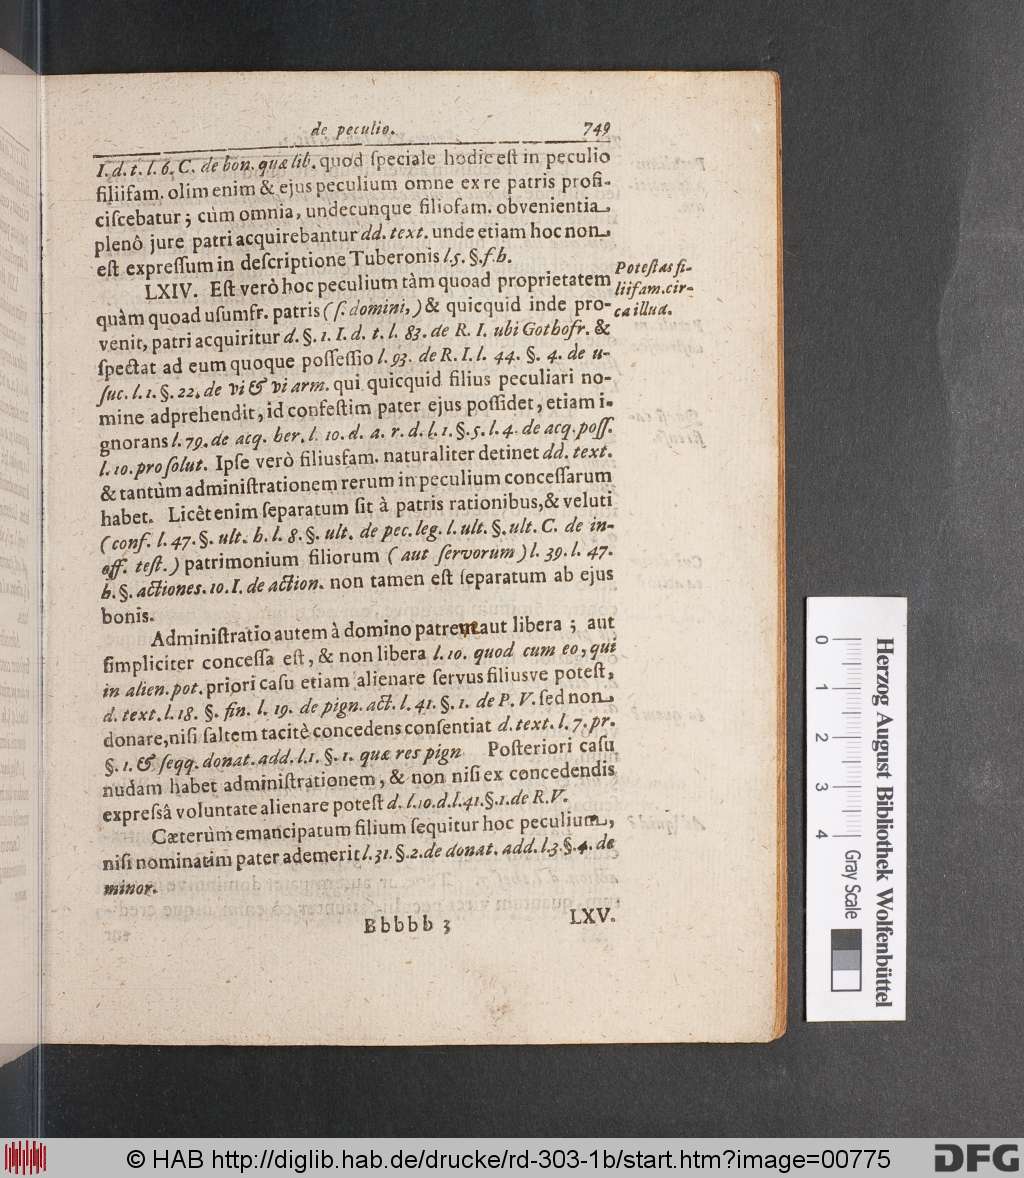 de peculio. 749
I. d. t. l. 6. C. de bon. quæ lib. quod ſpeciale hodie eſt in peculio
filiifam. olim enim & ejus peculium omne ex re patris profi-
ciſcebatur; cùm omnia, undecunque filiofam. obvenientia
plenô jure patri acquirebantur dd. text. unde etiam hoc non
eſt expreſſum in deſcriptione Tuberonis l. 5. §. f. h.
LXIV. Eſt verò hoc peculium tàm quoad proprietatem
quàm quoad uſumfr. patris (ſ. domini,) & quicquid inde pro-
venit, patri acquiritur d. §. 1. I. d. t. l. 83. de R. I. ubi Gothofr. &
ſpectat ad eum quoque poſſeſſio l. 93. de R. I. l. 44. §. 4. de u-
ſuc. l. 1. §. 22. de vi & vi arm. qui quicquid filius peculiari no-
mine adprehendit, id confeſtim pater ejus poſſidet, etiam i-
gnorans l. 79. de acq. her. l. 10. d. a. r. d. l. 1. §. 5. l. 4. de acq. poſſ.
l. 10. pro ſolut. Ipſe verò filiusfam. naturaliter detinet dd. text.
& tantùm adminiſtrationem rerum in peculium conceſſarum
habet. Licêt enim ſeparatum ſit à patris rationibus, & veluti
(conf. l. 47. §. ult. h. l. 8. §. ult. de pec. leg. l. ult. §. ult. C. de in-
off. teſt.) patrimonium filiorum (aut ſervorum) l. 39. l. 47.
h. §. actiones. 10. I. de action. non tamen eſt ſeparatum ab ejus
bonis.
Adminiſtratio autem à domino patre aut libera; aut
ſimpliciter conceſſa eſt, & non libera l. 10. quod cum eo, qui
in alien. pot. priori caſu etiam alienare ſervus filiusve poteſt,
d. text. l. 18. §. fin. l. 19. de pign. act. l. 41. §. 1. de P. V. ſed non
donare, niſi ſaltem tacitè concedens conſentiat d. text. l. 7. pr.
§. 1. & ſeqq. donat. add. l. 1. §. 1. quæ res pign Poſteriori caſu
nudam habet adminiſtrationem, & non niſi ex concedendis
expreſsâ voluntate alienare poteſt d. l. 10. d. l. 41. §. 1. de R. V.
Cæterùm emancipatum filium ſequitur hoc peculium,
niſi nominatim pater ademerit l. 31. §. 2. de donat. add. l. 3. §. 4. de
minor.
Bbbbb 3 LXV.
Poteſtas fi-
liifam. cir-
ca illud.
0
1
2
3
4
Gray Scale
Herzog August Bibliothek Wolfenbüttel
© HAB http://diglib.hab.de/drucke/rd-303-1b/start.htm?image=00775
DFG